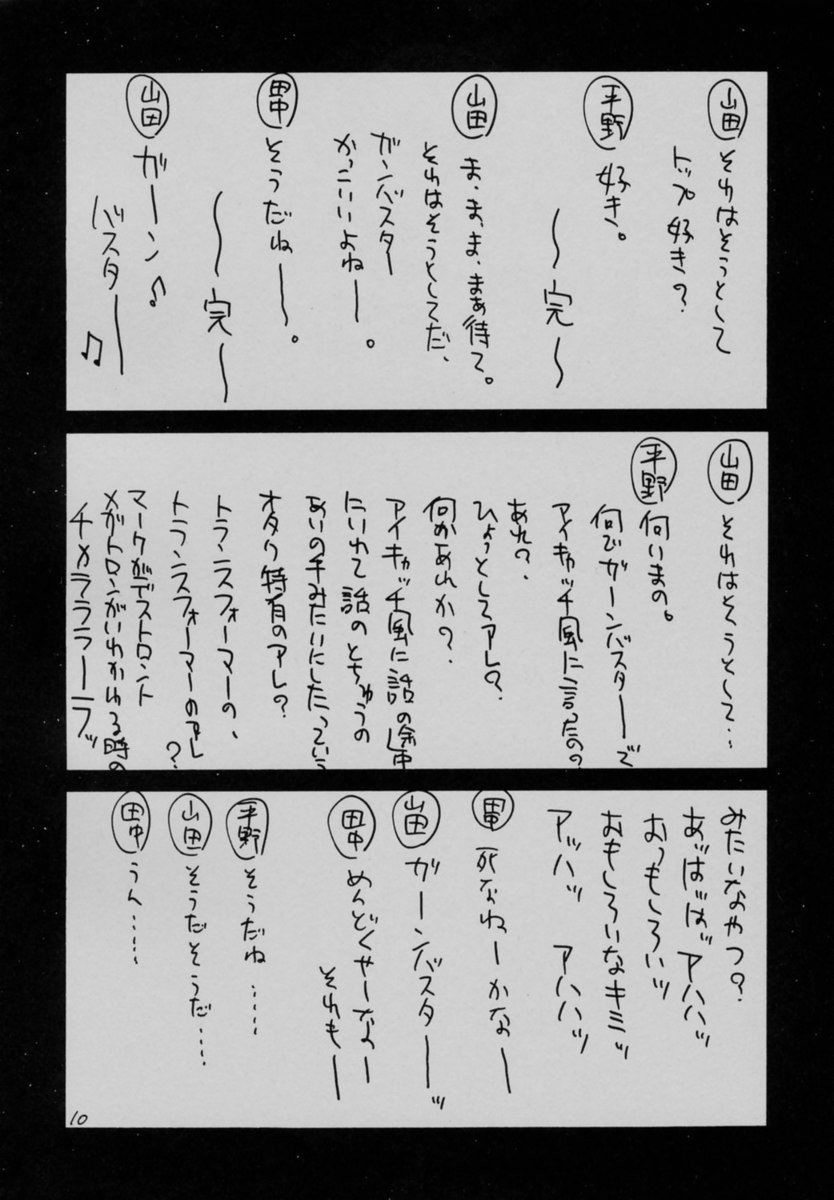 山田 それはそうとして
トップ好きの?
平野 好き。
〜完〜
山田 ま、ま、ま、まぁ待て。
それはそうとしてだ、
ガンバスター
かっこいいよねー。
田中 そうだねー。
〜完〜
山田 ガーン♪
バスター♫
山田 それはそうとして…
平野 何いまの。
何でガーンバスターーで
アイキャッチ風に言ったの?
あれ?、
ひょっとしてアレ?、
何かあれか?、
アイキャッチ風に話の途中
にいれて話のとちゅうの
あいの手みたいにしたっていう
オタク特有のアレ?
トランスフォーマーの、
トランスフォーマーのアレ?
マークがデストロント
メガトロンがいれかわる時の
チャラララーラッ
みたいなやつ?
あ゛ばばばアハハッ
おっもしろいッ
おもしろいなキミッ
アッハッ アハハッ
田中 死なねーかなー
山田 ガーンバスターーッ
田中 めんどくせーなー
それもー
平野 そうだね……
山田 そうだそうだ……
田中 うん……
10